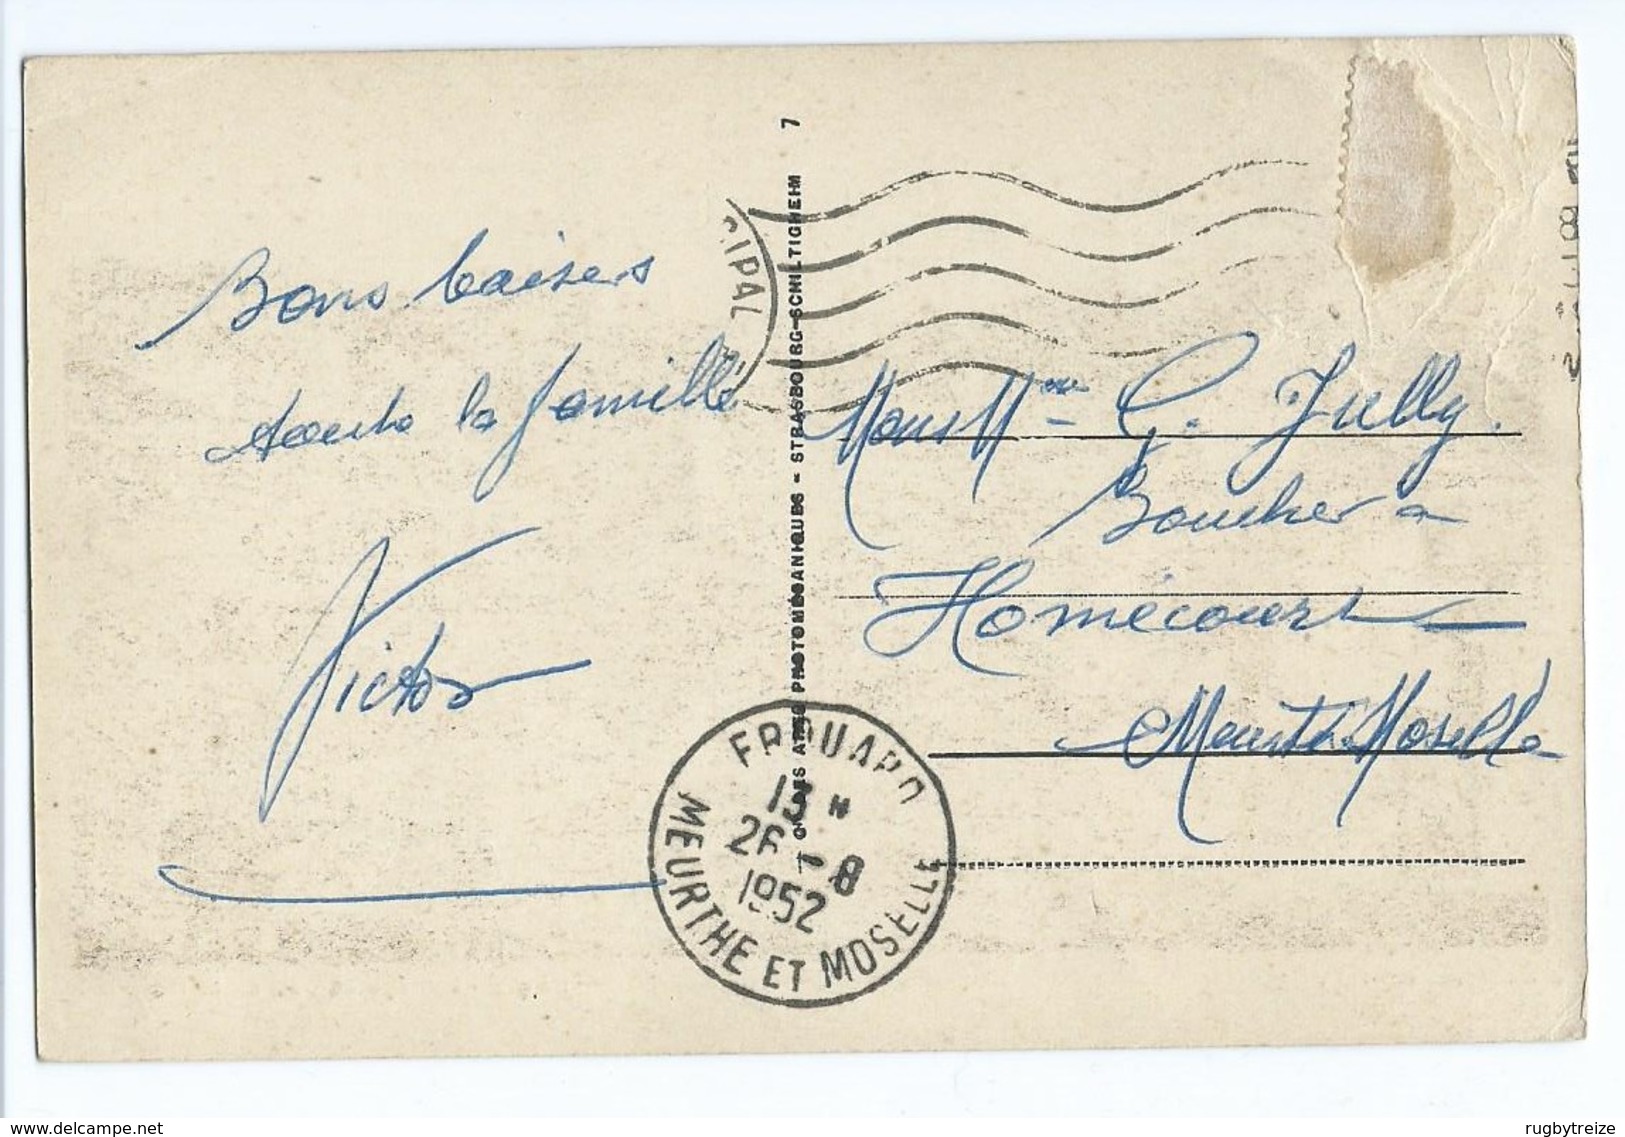 Bons baisers
toute la famille
Victor
CIPAL
7
STRASBOURG-SCHILTIGHEIM
PHOTOMECANIQUES -
M Mme G. Jully.
Boucher a
Homécourt
Meurthe Moselle
FROUARD
13 H
26 - 8
1952
MEURTHE ET MOSELLE
www.delcampe.net
rugbytreize